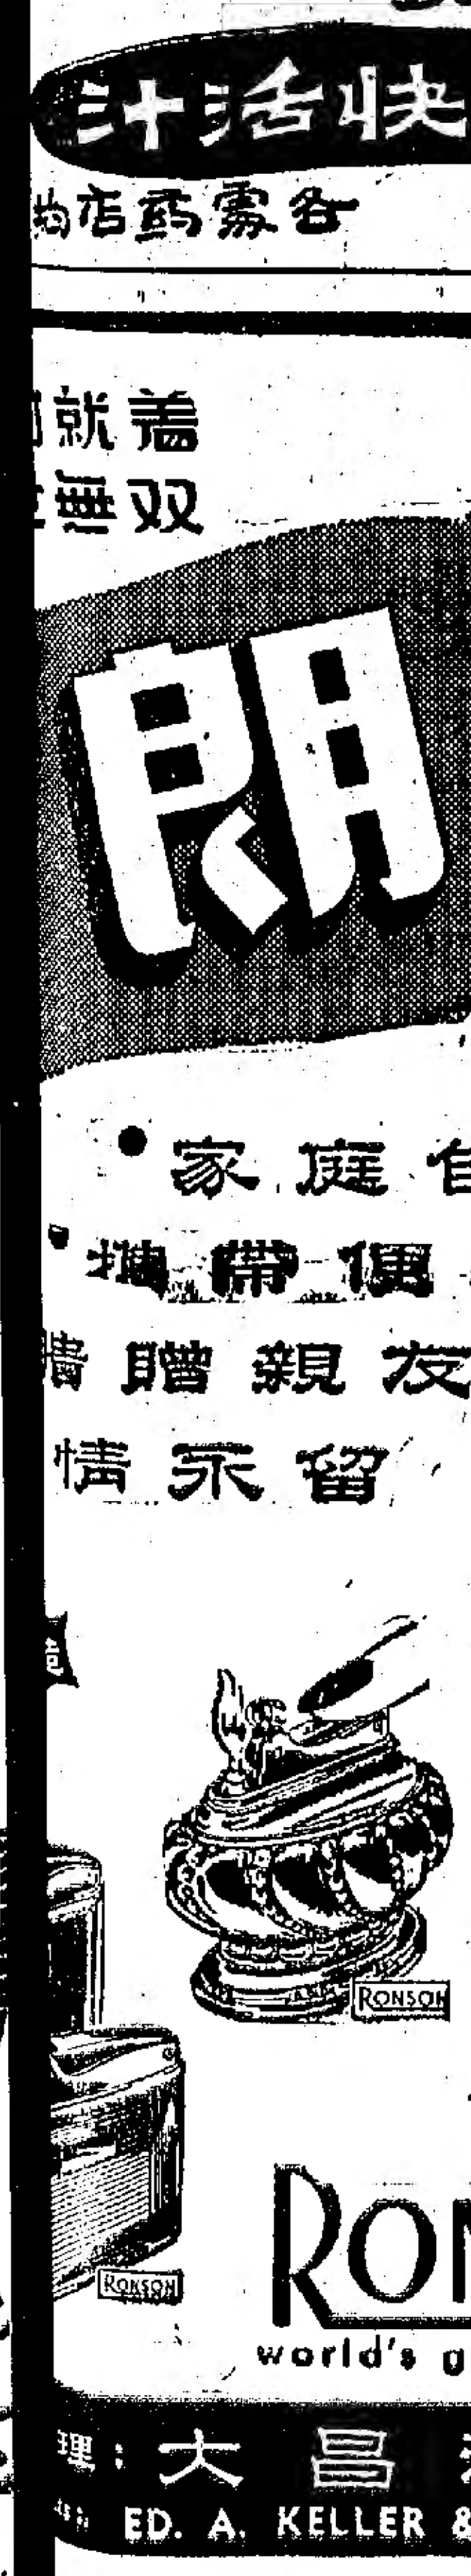 快活汁
各處葯店均
就着
無双
朗
• 家庭自
• 攜帶便
贈親友
情永留
RONSON
RONSON
RON
world's g
理：大昌
ED. A. KELLER &